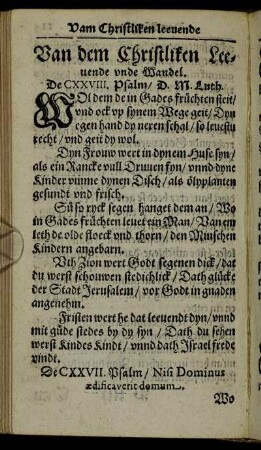 Vam Christliken leeuende
Van dem Christliken Lee-
uende vnde Wandel.
De CXXVIII. Psalm/ D. M. Luth.
WOl dem de in Gades früchten steit/
vnd ock vp synem Wege geit/ Dyn
egen hand dy neren schal/ so leuestu
recht/ vnd geit dy wol.
Dyn Frouw wert in dynem Huse syn/
als ein Rancke vull Druuen fyn/ vnnd dyne
Kinder vmme dynen Disch/ als ölyplanten
gesundt vnd frisch.
Sü so ryck segen hanget dem an/ Wo
in Gades früchten leuet ein Man/ Van em
leth de olde floeck vnd thorn/ den Minschen
Kindern angebarn.
Vth Zion wert Godt segenen dick/ dat
du werst schouwen stedichlick/ Dath glücke
der Stadt Jerusalem/ vor Godt in gnaden
angenehm.
Fristen wert he dat leeuendt dyn/ vnnd
mit güde stedes by dy syn/ Dath du sehen
werst Kindes Kindt/ vnnd dath Israel frede
vindt.
De CXXVII. Psalm/ Nisi Dominus
ædificauerit domum.
Wo